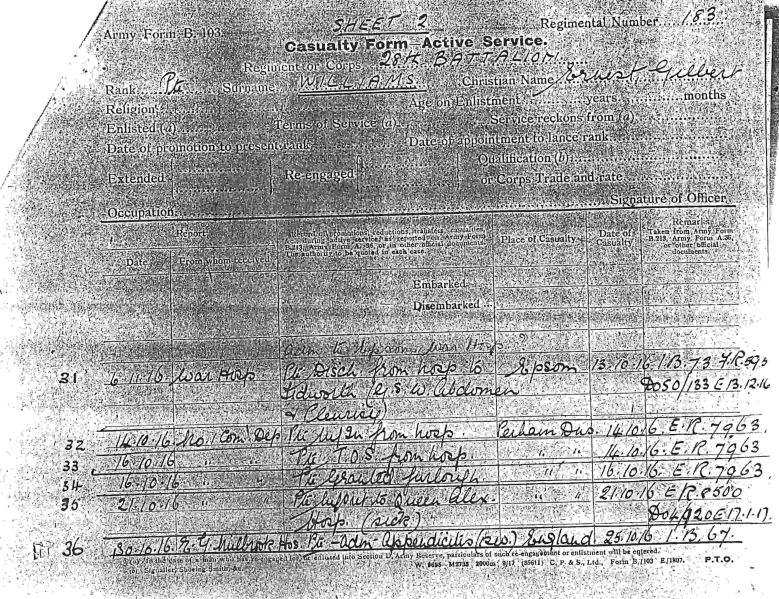 SHEET 2
Army Form B. 103.
Regimental Number 183
Casualty Form—Active Service.
Regiment or Corps 28th BATTALION
Rank Pte Surname WILLIAMS Christian Name Ernest Gilbert
Religion Age on Enlistment years months
Enlisted (a) Terms of Service (a) Service reckons from (a)
Date of promotion to present rank Date of appointment to lance rank
Extended Re-engaged Qualification (b)
or Corps Trade and rate
Occupation Signature of Officer
Report
Date From whom received
Record of promotions, reductions, transfers, casualties, &c., during active service, as reported on Army Form B.213, Army Form A.36, or in other official documents. The authority to be quoted in each case.
Place of Casualty
Date of Casualty
Remarks
Taken from Army Form B.213, Army Form A.36, or other official documents.
Embarked
Disembarked
adm to Epsom War Hosp
31 6.11.16 War Hosp Pte Disch from hosp to Epsom 13.10.16 I.B. 73
Tidworth (G.S.W. Abdomen DO50/133 E 13.12.16
& Pleurisy)
32 14.10.16 No. 1 Com' Dep Pte from hosp. Perham Dns. 14.10.16. E.R. 7963.
33 16.10.16 " " Pte T.O.S. from hosp " " 14.10.16. E.R. 7963
34 16.10.16 " " Pte Granted furlough " " 16.10.16. E.R. 7963.
35 21.10.16 " " Pte to Queen Alex. " " 21.10.16 E.R. 8500
Hosp. (sick) E17.1.17.
36 30.10.16. Hos. Pte - Adm Appendicitis (sev.) England 25.10.16. I.B. 67.
(a) In the case of a man who has re-engaged for, or enlisted into Section D, Army Reserve, particulars of such re-engagement or enlistment will be entered.
(b) Signaller, Shoeing Smith, &c.
C. P. & S., Ltd., Form B./103 E/1807. P.T.O.